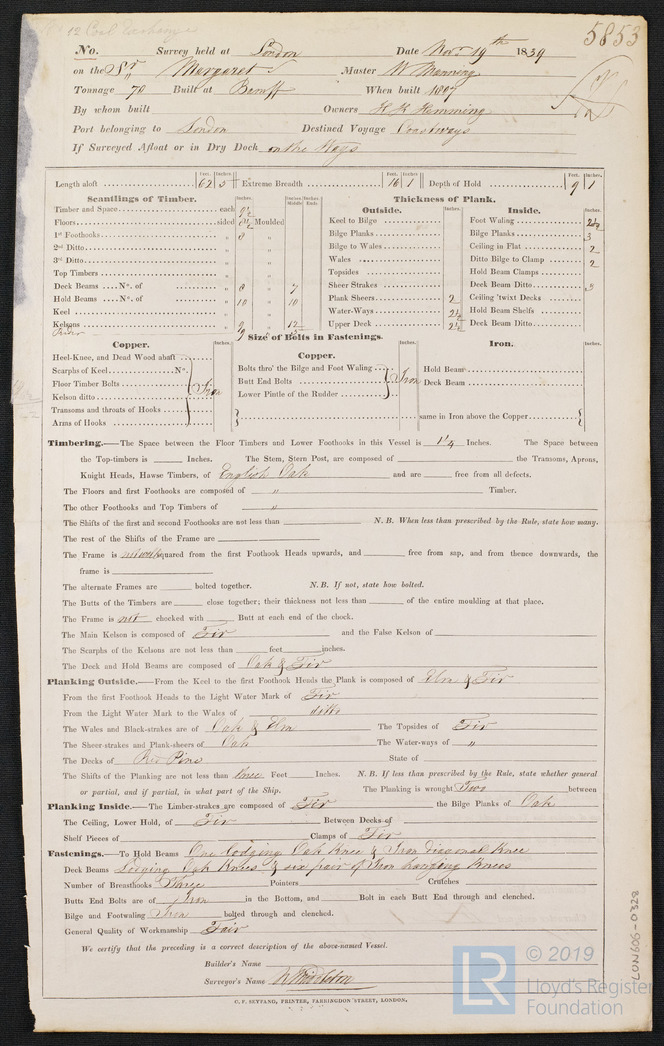 12 Coal
5853
No. Survey held at London Date Novr 19th 1839
on the Sr Margaret Master W Manning
Tonnage 70 Built at Banff When built
By whom built Owners H K Hemming
Port belonging to London Destined Voyage Coastways
If Surveyed Afloat or in Dry Dock on the Ways
Length aloft Feet. 62 Inches. 5 Extreme Breadth Feet. 16 Inches. 1 Depth of Hold Feet. 9 Inches. 1
Scantlings of Timber. Inches. Inches Middle Inches Ends.
Timber and Space each
Floors sided Moulded
1st Foothooks " 8 "
2nd Ditto " "
3rd Ditto " "
Top Timbers " "
Deck Beams No. of " 8 " 7
Hold Beams No. of " 10 " 10
Keel " "
Kelsons " 9 " 12
Rider
Thickness of Plank.
Outside. Inches.
Keel to Bilge
Bilge Planks
Bilge to Wales
Wales
Topsides
Sheer Strakes
Plank Sheers 2
Water-Ways 2½
Upper Deck 2½
Inside. Inches.
Foot Waling 2½
Bilge Planks 3
Ceiling in Flat 2
Ditto Bilge to Clamp 2
Hold Beam Clamps
Deck Beam Ditto 3
Ceiling 'twixt Decks
Hold Beam Shelfs
Deck Beam Ditto
Size of Bolts in Fastenings.
Copper. Inches.
Heel-Knee, and Dead Wood abaft
Scarphs of Keel No.
Floor Timber Bolts Iron
Kelson ditto
Transoms and throats of Hooks
Arms of Hooks
Copper. Inches.
Bolts thro' the Bilge and Foot Waling
Butt End Bolts Iron
Lower Pintle of the Rudder
Iron. Inches.
Hold Beam
Deck Beam
same in Iron above the Copper
Timbering.—The Space between the Floor Timbers and Lower Foothooks in this Vessel is 1¼ Inches. The Space between
the Top-timbers is Inches. The Stem, Stern Post, are composed of the Transoms, Aprons,
Knight Heads, Hawse Timbers, of English Oak and are free from all defects.
The Floors and first Foothooks are composed of " Timber.
The other Foothooks and Top Timbers of "
The Shifts of the first and second Foothooks are not less than N. B. When less than prescribed by the Rule, state how many.
The rest of the Shifts of the Frame are
The Frame is not well squared from the first Foothook Heads upwards, and free from sap, and from thence downwards, the
frame is
The alternate Frames are bolted together. N. B. If not, state how bolted.
The Butts of the Timbers are close together; their thickness not less than of the entire moulding at that place.
The Frame is not chocked with Butt at each end of the chock.
The Main Kelson is composed of Fir and the False Kelson of
The Scarphs of the Kelsons are not less than feet inches.
The Deck and Hold Beams are composed of Oak & Fir
Planking Outside.—From the Keel to the first Foothook Heads the Plank is composed of Elm & Fir
From the first Foothook Heads to the Light Water Mark of Fir
From the Light Water Mark to the Wales of ditto
The Wales and Black-strakes are of Oak & Elm The Topsides of Fir
The Sheer-strakes and Plank-sheers of Oak The Water-ways of "
The Decks of Red Pine State of
The Shifts of the Planking are not less than three Feet Inches. N. B. If less than prescribed by the Rule, state whether general
or partial, and if partial, in what part of the Ship. The Planking is wrought Two between
Planking Inside.—The Limber-strakes are composed of Fir the Bilge Planks of Oak
The Ceiling, Lower Hold, of Fir Between Decks of
Shelf Pieces of Clamps of Fir
Fastenings.—To Hold Beams One lodging Oak Knee & Iron diagonal Knee
Deck Beams Lodging Oak Knees & six pair of Iron hanging Knees
Number of Breasthooks Three Pointers Crutches
Butts End Bolts are of Iron in the Bottom, and Bolt in each Butt End through and clenched.
Bilge and Footwaling Iron bolted through and clenched.
General Quality of Workmanship Fair
We certify that the preceding is a correct description of the above-named Vessel.
Builder's Name
Surveyor's Name W Middleton
C. F. SEYFANG, PRINTER, FARRINGDON STREET, LONDON.
LON606-0328
© 2019
LR
Lloyd's Register
Foundation